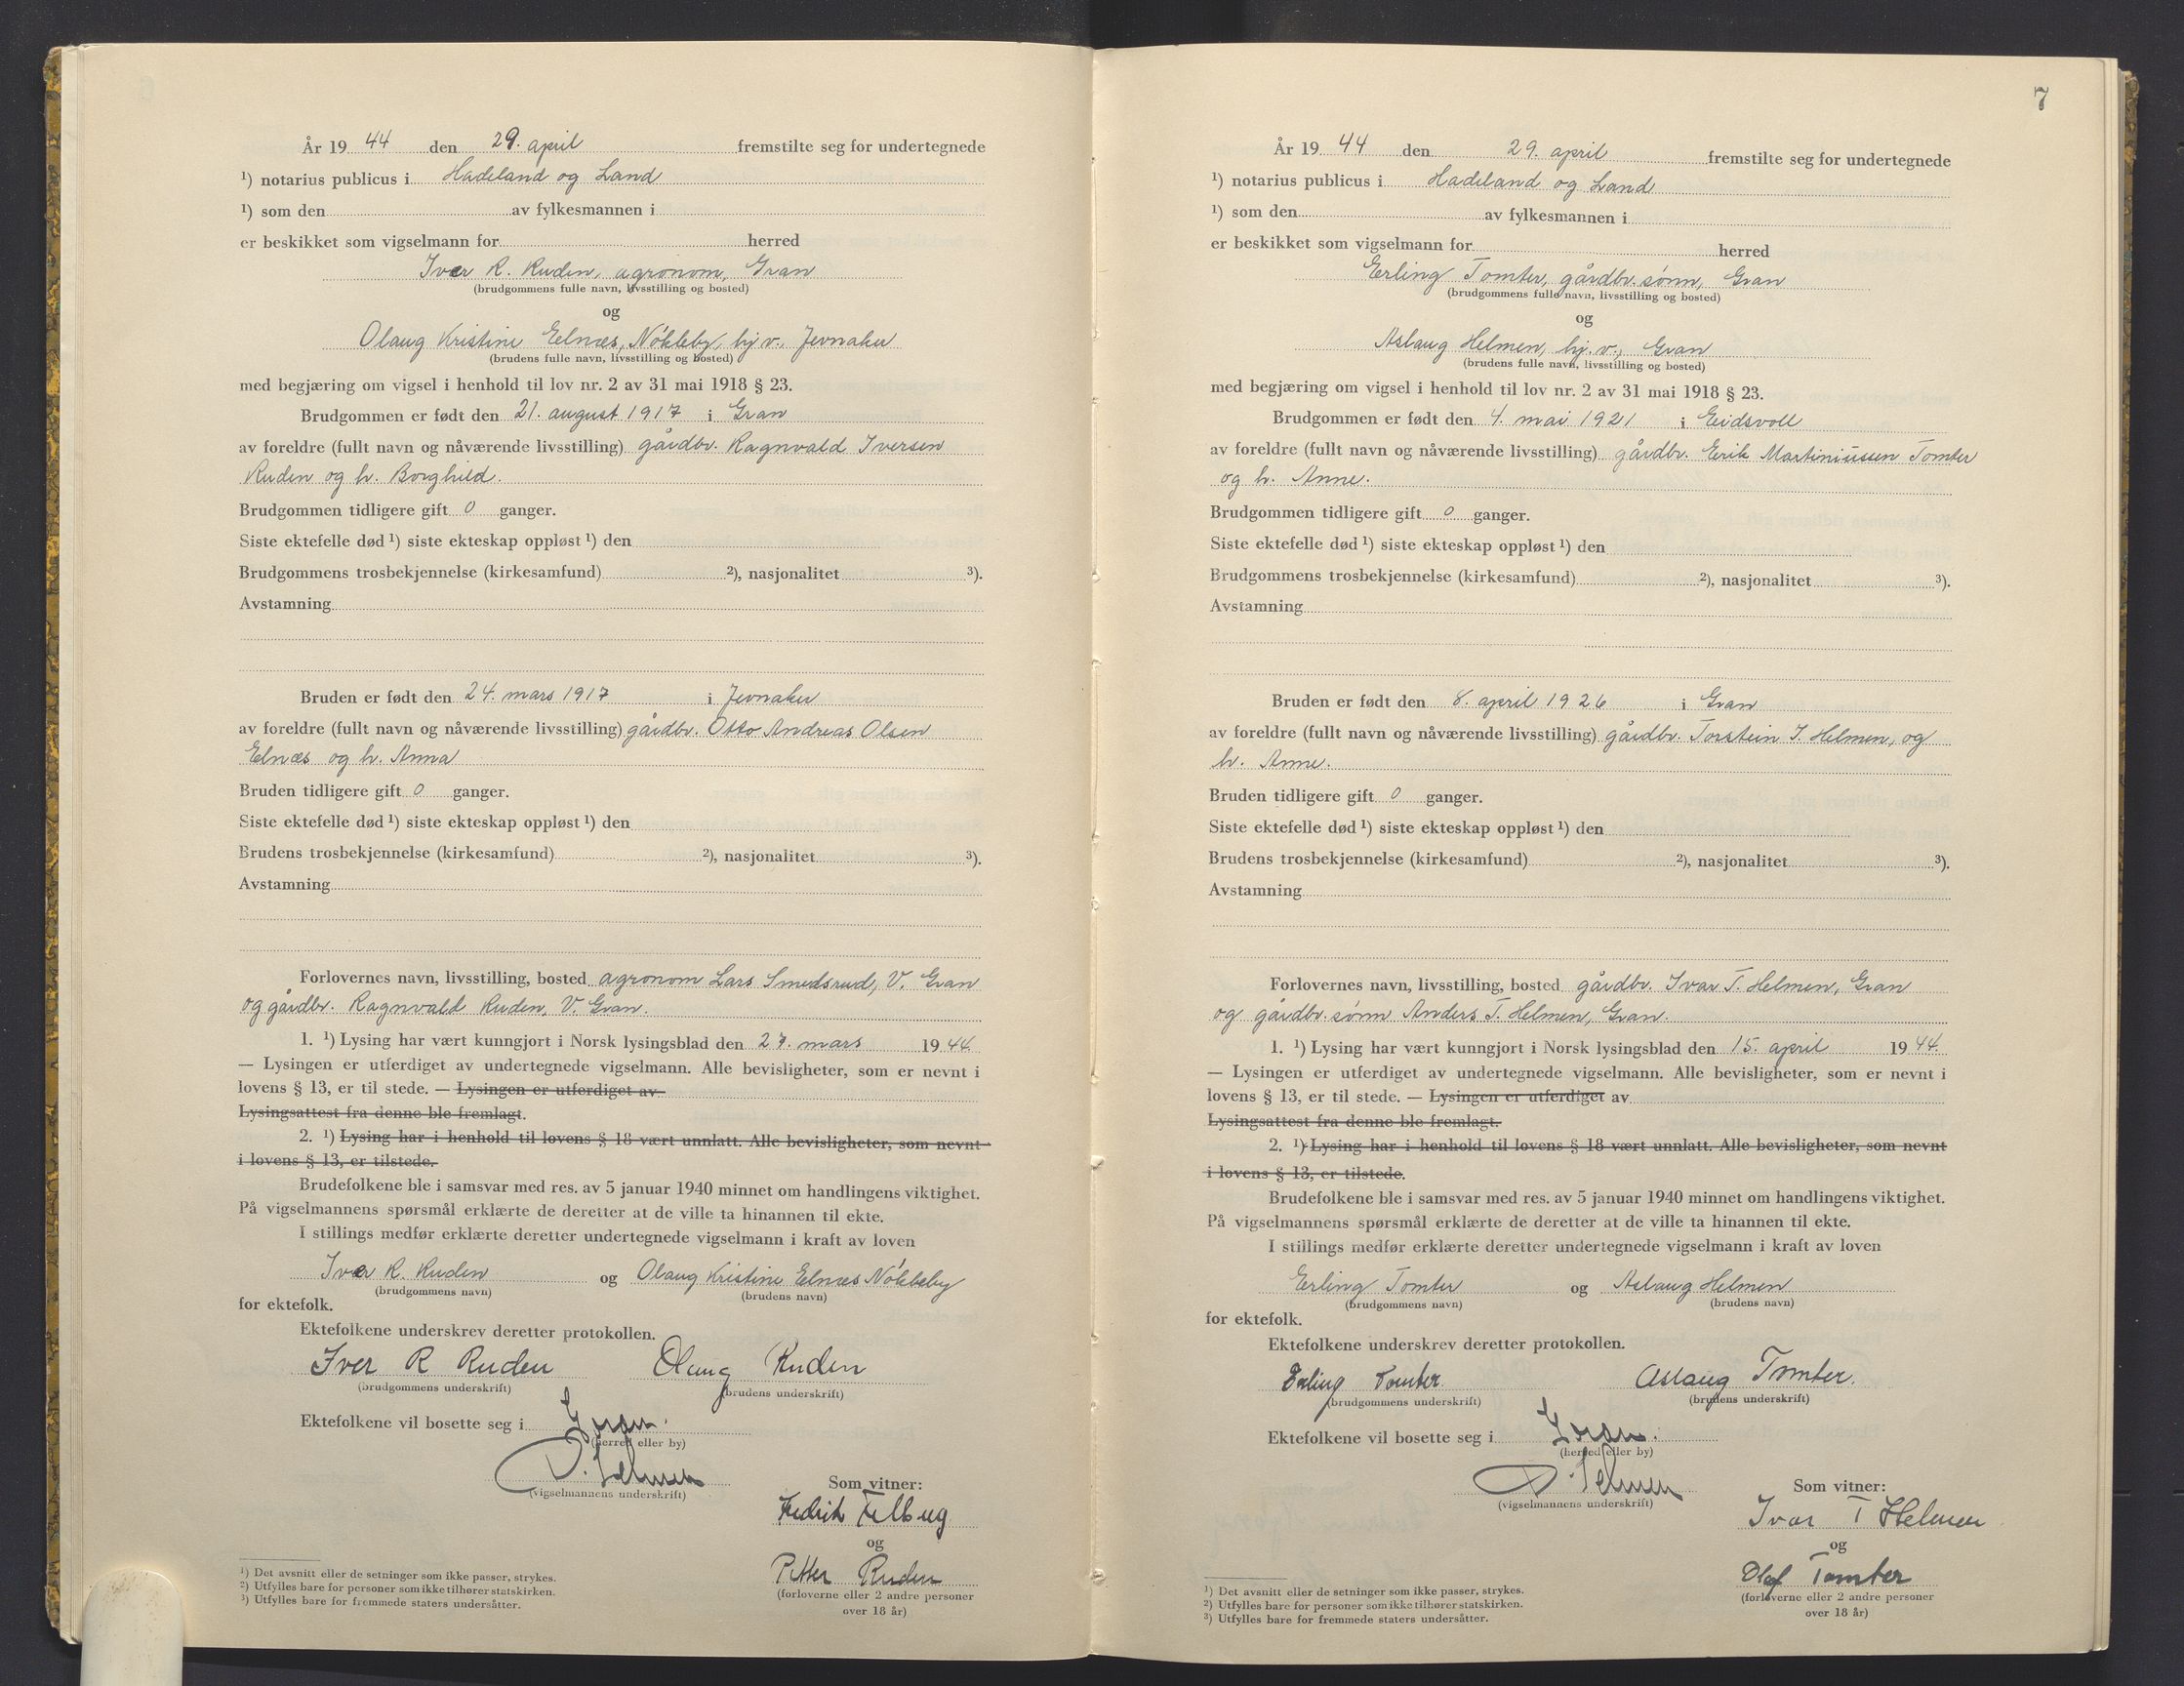 År 19 44 den 29. april fremstilte seg for undertegnede
¹) notarius publicus i Hadeland og Land
¹) som den av fylkesmannen i
er beskikket som vigselmann for herred
Iver R. Ruden, agronom, Gran
(brudgommens fulle navn, livsstilling og bosted)
og
Olaug Kristine Elnæs, Nøkleby, hj.v., Jevnaker
(brudens fulle navn, livsstilling og bosted)
med begjæring om vigsel i henhold til lov nr. 2 av 31 mai 1918 § 23.
Brudgommen er født den 21. august 1917 i Gran
av foreldre (fullt navn og nåværende livsstilling) gårdbr. Ragnvald Iversen
Ruden og h. Borghild.
Brudgommen tidligere gift 0 ganger.
Siste ektefelle død ¹) siste ekteskap oppløst ¹) den
Brudgommens trosbekjennelse (kirkesamfund) ²), nasjonalitet ³).
Avstamning
Bruden er født den 24. mars 1917 i Jevnaker
av foreldre (fullt navn og nåværende livsstilling) gårdbr. Otto Andreas Olsen
Elnæs og h. Anna
Bruden tidligere gift 0 ganger.
Siste ektefelle død ¹) siste ekteskap oppløst ¹) den
Brudens trosbekjennelse (kirkesamfund) ²), nasjonalitet ³).
Avstamning
Forlovernes navn, livsstilling, bosted agronom Lars Smedsrud, V. Gran
og gårdbr. Ragnvald Ruden, V. Gran.
1. ¹) Lysing har vært kunngjort i Norsk lysingsblad den 27. mars 19 44.
— Lysingen er utferdiget av undertegnede vigselmann. Alle bevisligheter, som er nevnt i
lovens § 13, er til stede. — Lysingen er utferdiget av
Lysingsattest fra denne ble fremlagt.
2. ¹) Lysing har i henhold til lovens § 18 vært unnlatt. Alle bevisligheter, som nevnt
i lovens § 13, er tilstede.
Brudefolkene ble i samsvar med res. av 5 januar 1940 minnet om handlingens viktighet.
På vigselmannens spørsmål erklærte de deretter at de ville ta hinannen til ekte.
I stillings medfør erklærte deretter undertegnede vigselmann i kraft av loven
Iver R. Ruden og Olaug Kristine Elnæs Nøkleby
(brudgommens navn) (brudens navn)
for ektefolk.
Ektefolkene underskrev deretter protokollen.
Iver R Ruden Olaug Ruden
(brudgommens underskrift) (brudens underskrift)
Ektefolkene vil bosette seg i Gran.
(herred eller by)
(vigselmannens underskrift)
Som vitner:
Fredrik
og
Petter Ruden
(forloverne eller 2 andre personer
over 18 år)
¹) Det avsnitt eller de setninger som ikke passer, strykes.
²) Utfylles bare for personer som ikke tilhører statskirken.
³) Utfylles bare for fremmede staters undersåtter.
7
År 19 44 den 29. april fremstilte seg for undertegnede
¹) notarius publicus i Hadeland og Land
¹) som den av fylkesmannen i
er beskikket som vigselmann for herred
Erling Tomter, gårdbr. sønn, Gran
(brudgommens fulle navn, livsstilling og bosted)
og
Aslaug Helmen, hj.v., Gran
(brudens fulle navn, livsstilling og bosted)
med begjæring om vigsel i henhold til lov nr. 2 av 31 mai 1918 § 23.
Brudgommen er født den 4. mai 1921 i Eidsvoll
av foreldre (fullt navn og nåværende livsstilling) gårdbr. Erik Martiniussen Tomter
og h. Anne.
Brudgommen tidligere gift 0 ganger.
Siste ektefelle død ¹) siste ekteskap oppløst ¹) den
Brudgommens trosbekjennelse (kirkesamfund) ²), nasjonalitet ³).
Avstamning
Bruden er født den 8. april 1926 i Gran
av foreldre (fullt navn og nåværende livsstilling) gårdbr. Torstein I. Helmen, og
h. Anne.
Bruden tidligere gift 0 ganger.
Siste ektefelle død ¹) siste ekteskap oppløst ¹) den
Brudens trosbekjennelse (kirkesamfund) ²), nasjonalitet ³).
Avstamning
Forlovernes navn, livsstilling, bosted gårdbr. Ivar T. Helmen, Gran
og gårdbr. sønn Anders T. Helmen, Gran.
1. ¹) Lysing har vært kunngjort i Norsk lysingsblad den 15. april 19 44.
— Lysingen er utferdiget av undertegnede vigselmann. Alle bevisligheter, som er nevnt i
lovens § 13, er til stede. — Lysingen er utferdiget av
Lysingsattest fra denne ble fremlagt.
2. ¹) Lysing har i henhold til lovens § 18 vært unnlatt. Alle bevisligheter, som nevnt
i lovens § 13, er tilstede.
Brudefolkene ble i samsvar med res. av 5 januar 1940 minnet om handlingens viktighet.
På vigselmannens spørsmål erklærte de deretter at de ville ta hinannen til ekte.
I stillings medfør erklærte deretter undertegnede vigselmann i kraft av loven
Erling Tomter og Aslaug Helmen
(brudgommens navn) (brudens navn)
for ektefolk.
Ektefolkene underskrev deretter protokollen.
Erling Tomter Aslaug Tomter.
(brudgommens underskrift) (brudens underskrift)
Ektefolkene vil bosette seg i Gran.
(herred eller by)
(vigselmannens underskrift)
Som vitner:
Ivar T Helmen
og
Olaf Tomter
(forloverne eller 2 andre personer
over 18 år)
¹) Det avsnitt eller de setninger som ikke passer, strykes.
²) Utfylles bare for personer som ikke tilhører statskirken.
³) Utfylles bare for fremmede staters undersåtter.